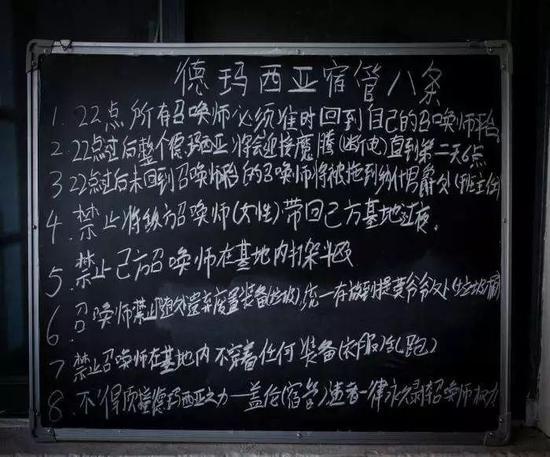 德玛西亚宿管八条
1. 22点所有召唤师必须准时回到自己的召唤师台
2. 22点过后整个德玛西亚将会迎接魔腾(断电)直到第二天6点
3 22点过后未回到召唤师台的召唤师将被拖到纳什男爵处(班主任)
4. 禁止将敌方召唤师(女性)带回己方基地过夜.
5. 禁止己方召唤师在基地内打架斗殴
6. 召唤师禁止随处置弃废置装备(垃圾)统一存放到提莫令令处(垃圾桶)
7 禁止召唤师在基地内不穿着任何装备(衣服)乱跑)
8. 不得顶撞德玛西亚之力—盖伦(宿管)违者一律永久剥夺召唤师权力